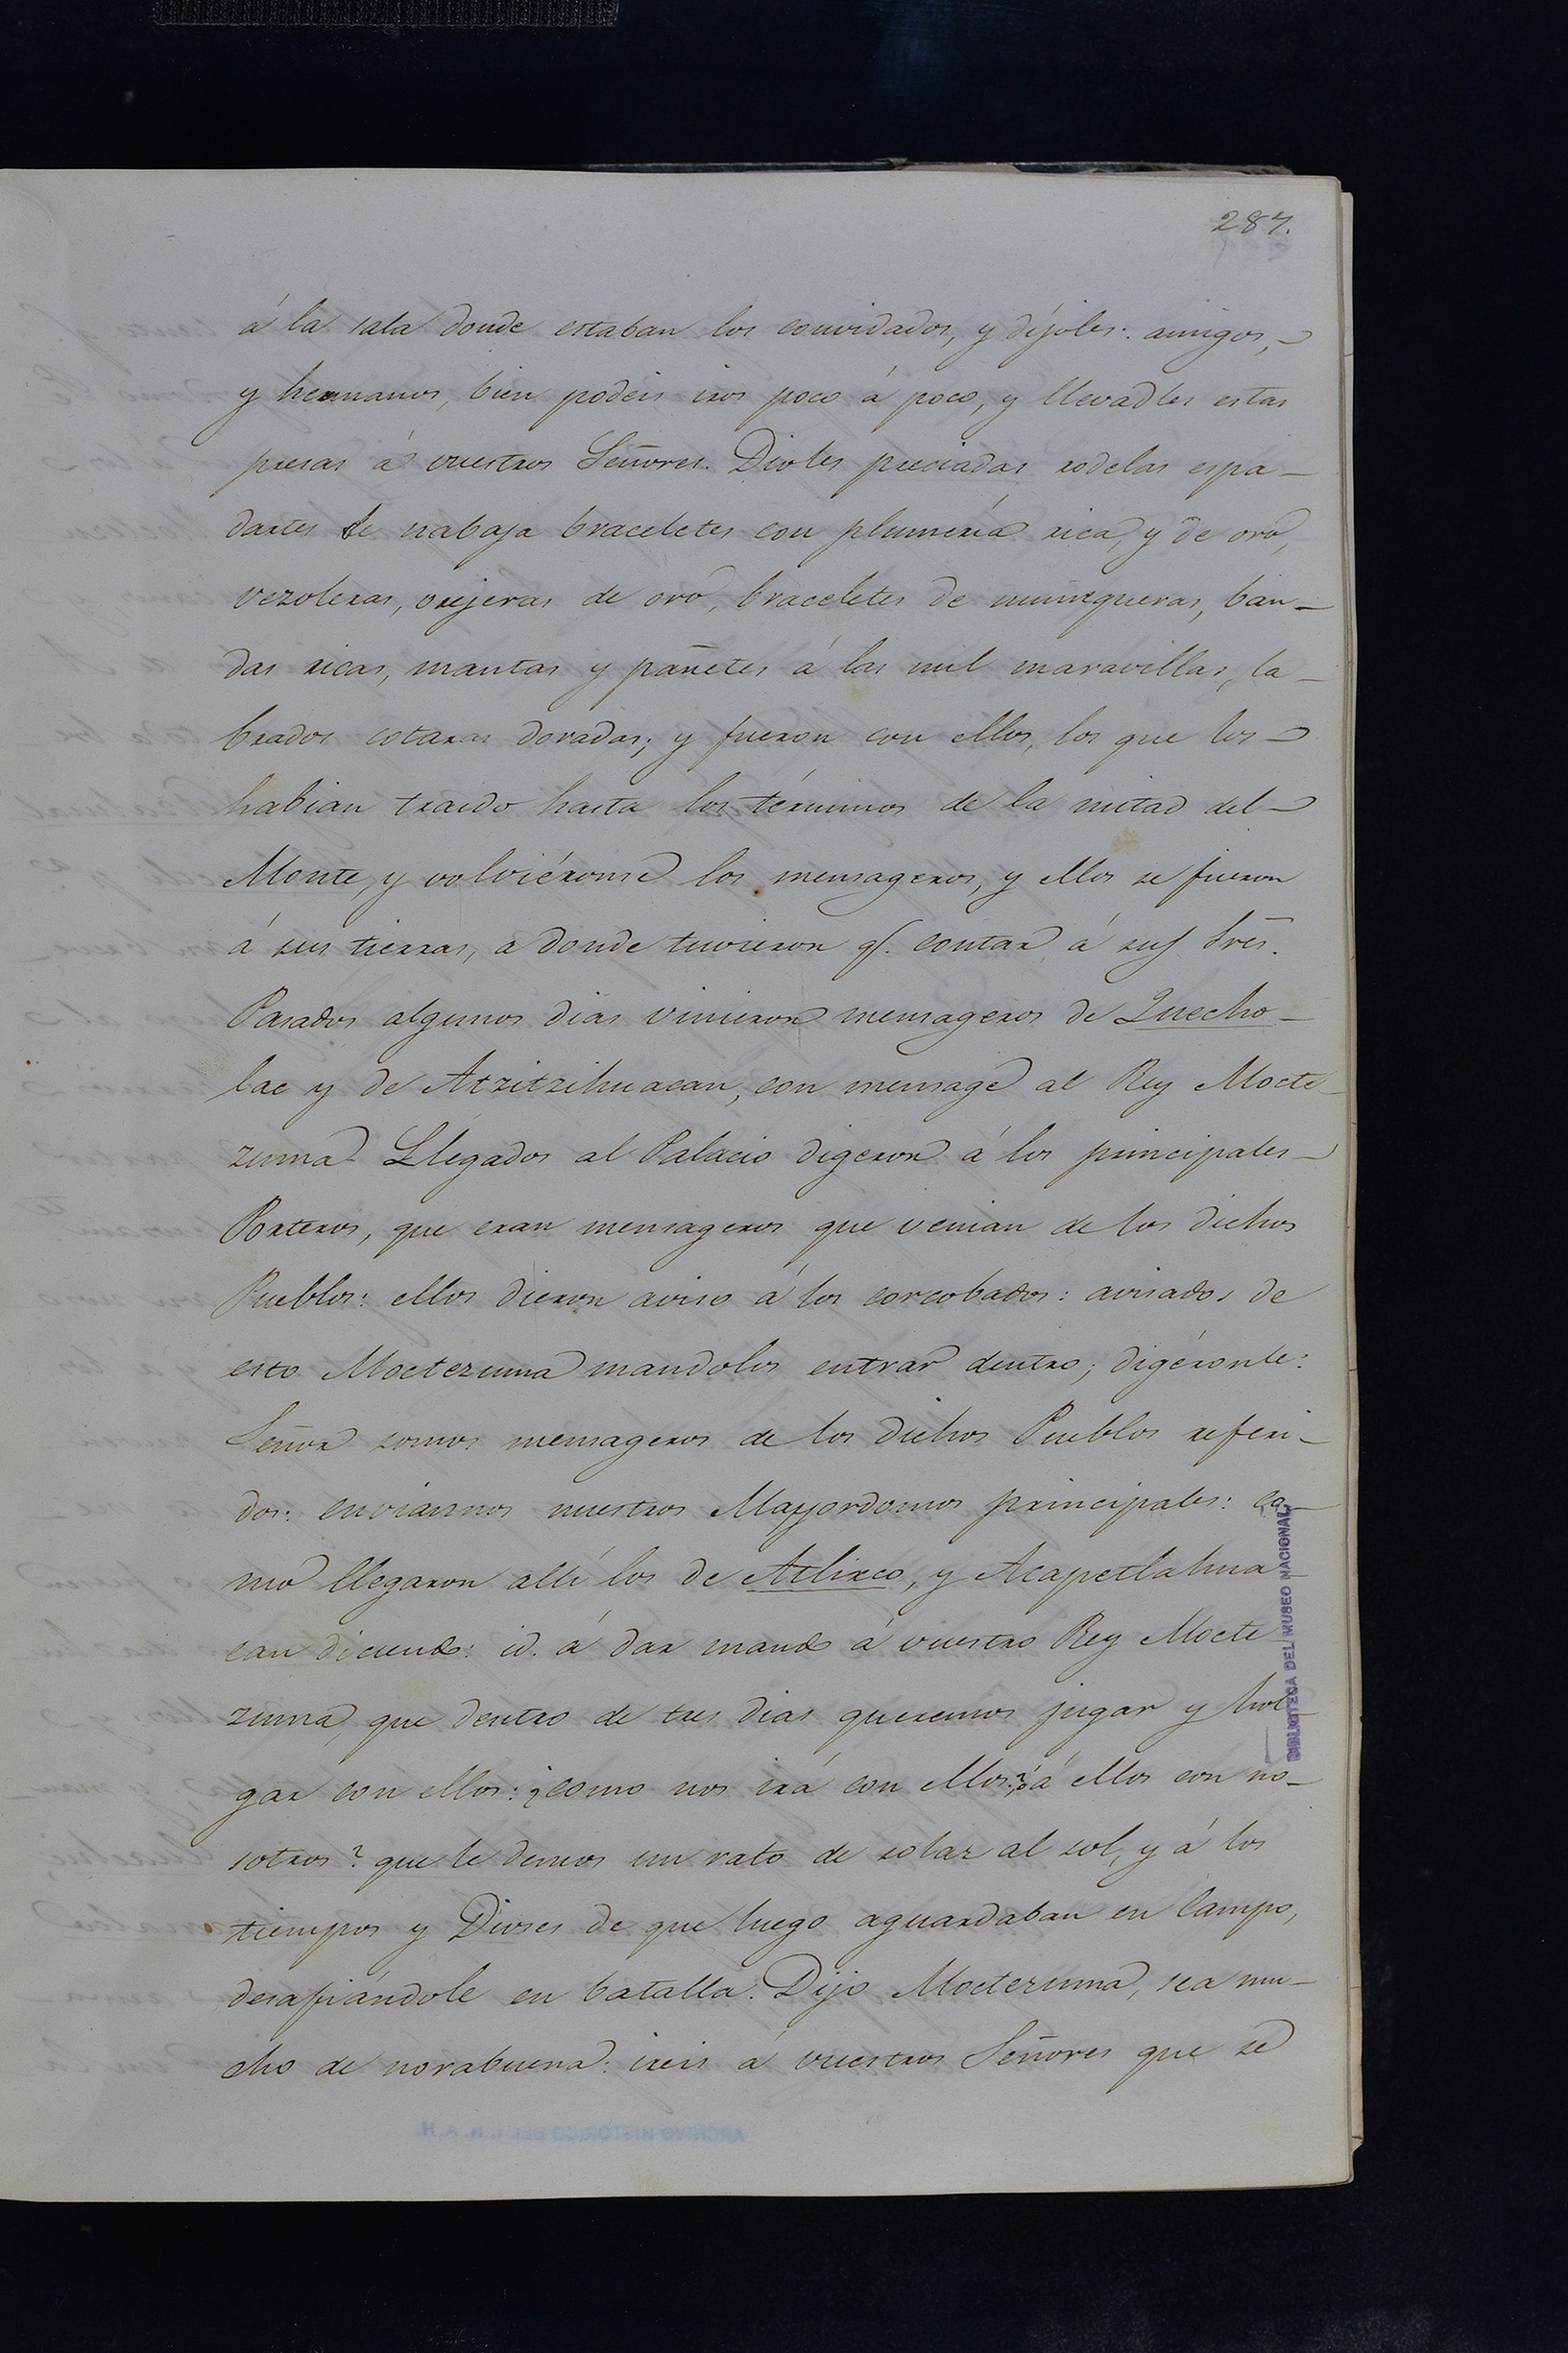 287.
á la sala donde estaban los convidados, y díjoles: amigos,
y hermanos, bien podeis iros poco á poco, y llevadles estas
presas á vuestros Señores. Dioles preciadas rodelas espa-
dartes de nabaja braceletes con plumería rica, y de oro,
vezoleras, orejeras de oro, braceletes de muñequeras, ban-
das ricas, mantas y pañetes á las mil maravillas, la-
brados cotaras doradas; y fueron con ellos, los que los
habian traido hasta los términos de la mitad del
Monte, y volviéronse los mensageros, y ellos se fueron
á sus tierras, a donde tuvieron q. contar á sus Sres.
Pasados algunos dias vinieron mensageros de Quecho-
lac y de Atzitzihuacan, con mensage al Rey Mocte-
zuma. Llegados al Palacio digeron á los principales
Porteros, que eran mensageros que venian de los dichos
Pueblos: ellos dieron aviso á los corcobados: avisados de
esto Moctezuma mandolos entrar dentro; digéronle:
Señor somos mensageros de los dichos Pueblos referi-
dos: envíannos nuestros Mayordomos principales: co-
mo llegaron allí los de Atlixco, y Acapetlahua-
can diciendo: id. á dar mando á vuestro Rey Mocte-
zuma, que dentro de tres dias queremos jugar y hol-
gar con ellos: ¿como nos irá con ellos? ¿á ellos con no-
sotros? que le demos un rato de solaz al sol, y á los
tiempos y Dioses de que luego aguardaban en Campo,
desafiándole en batalla. Dijo Moctezuma, sea mu-
cho de norabuena: ireis á vuestros Señores que se
BIBLIOTECA DEL MUSEO NACIONAL
ARCHIVO HISTORICO DEL I. N. A. H.